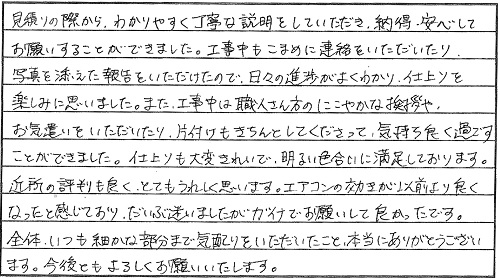 見積りの際から、わかりやすく丁寧な説明をしていただき、納得・安心して
お願いすることができました。工事中もこまめに連絡をいただいたり、
写真を添えた報告をいただけたので、日々の進捗がよくわかり、仕上りを
楽しみに思いました。また、工事中は職人さん方のにこやかな挨拶や、
お気遣いをいただいたり、片付けもきちんとしてくださって、気持ち良く過ごす
ことができました。仕上りも大変きれいで、明るい色合いに満足しております。
近所の評判も良く、とてもうれしく思います。エアコンの効きが以前より良く
なったと感じており、だいぶ迷いましたがガイナでお願いして良かったです。
全体、いつも細かな部分まで気配りをいただいたこと、本当にありがとうござい
ます。今後ともよろしくお願いいたします。